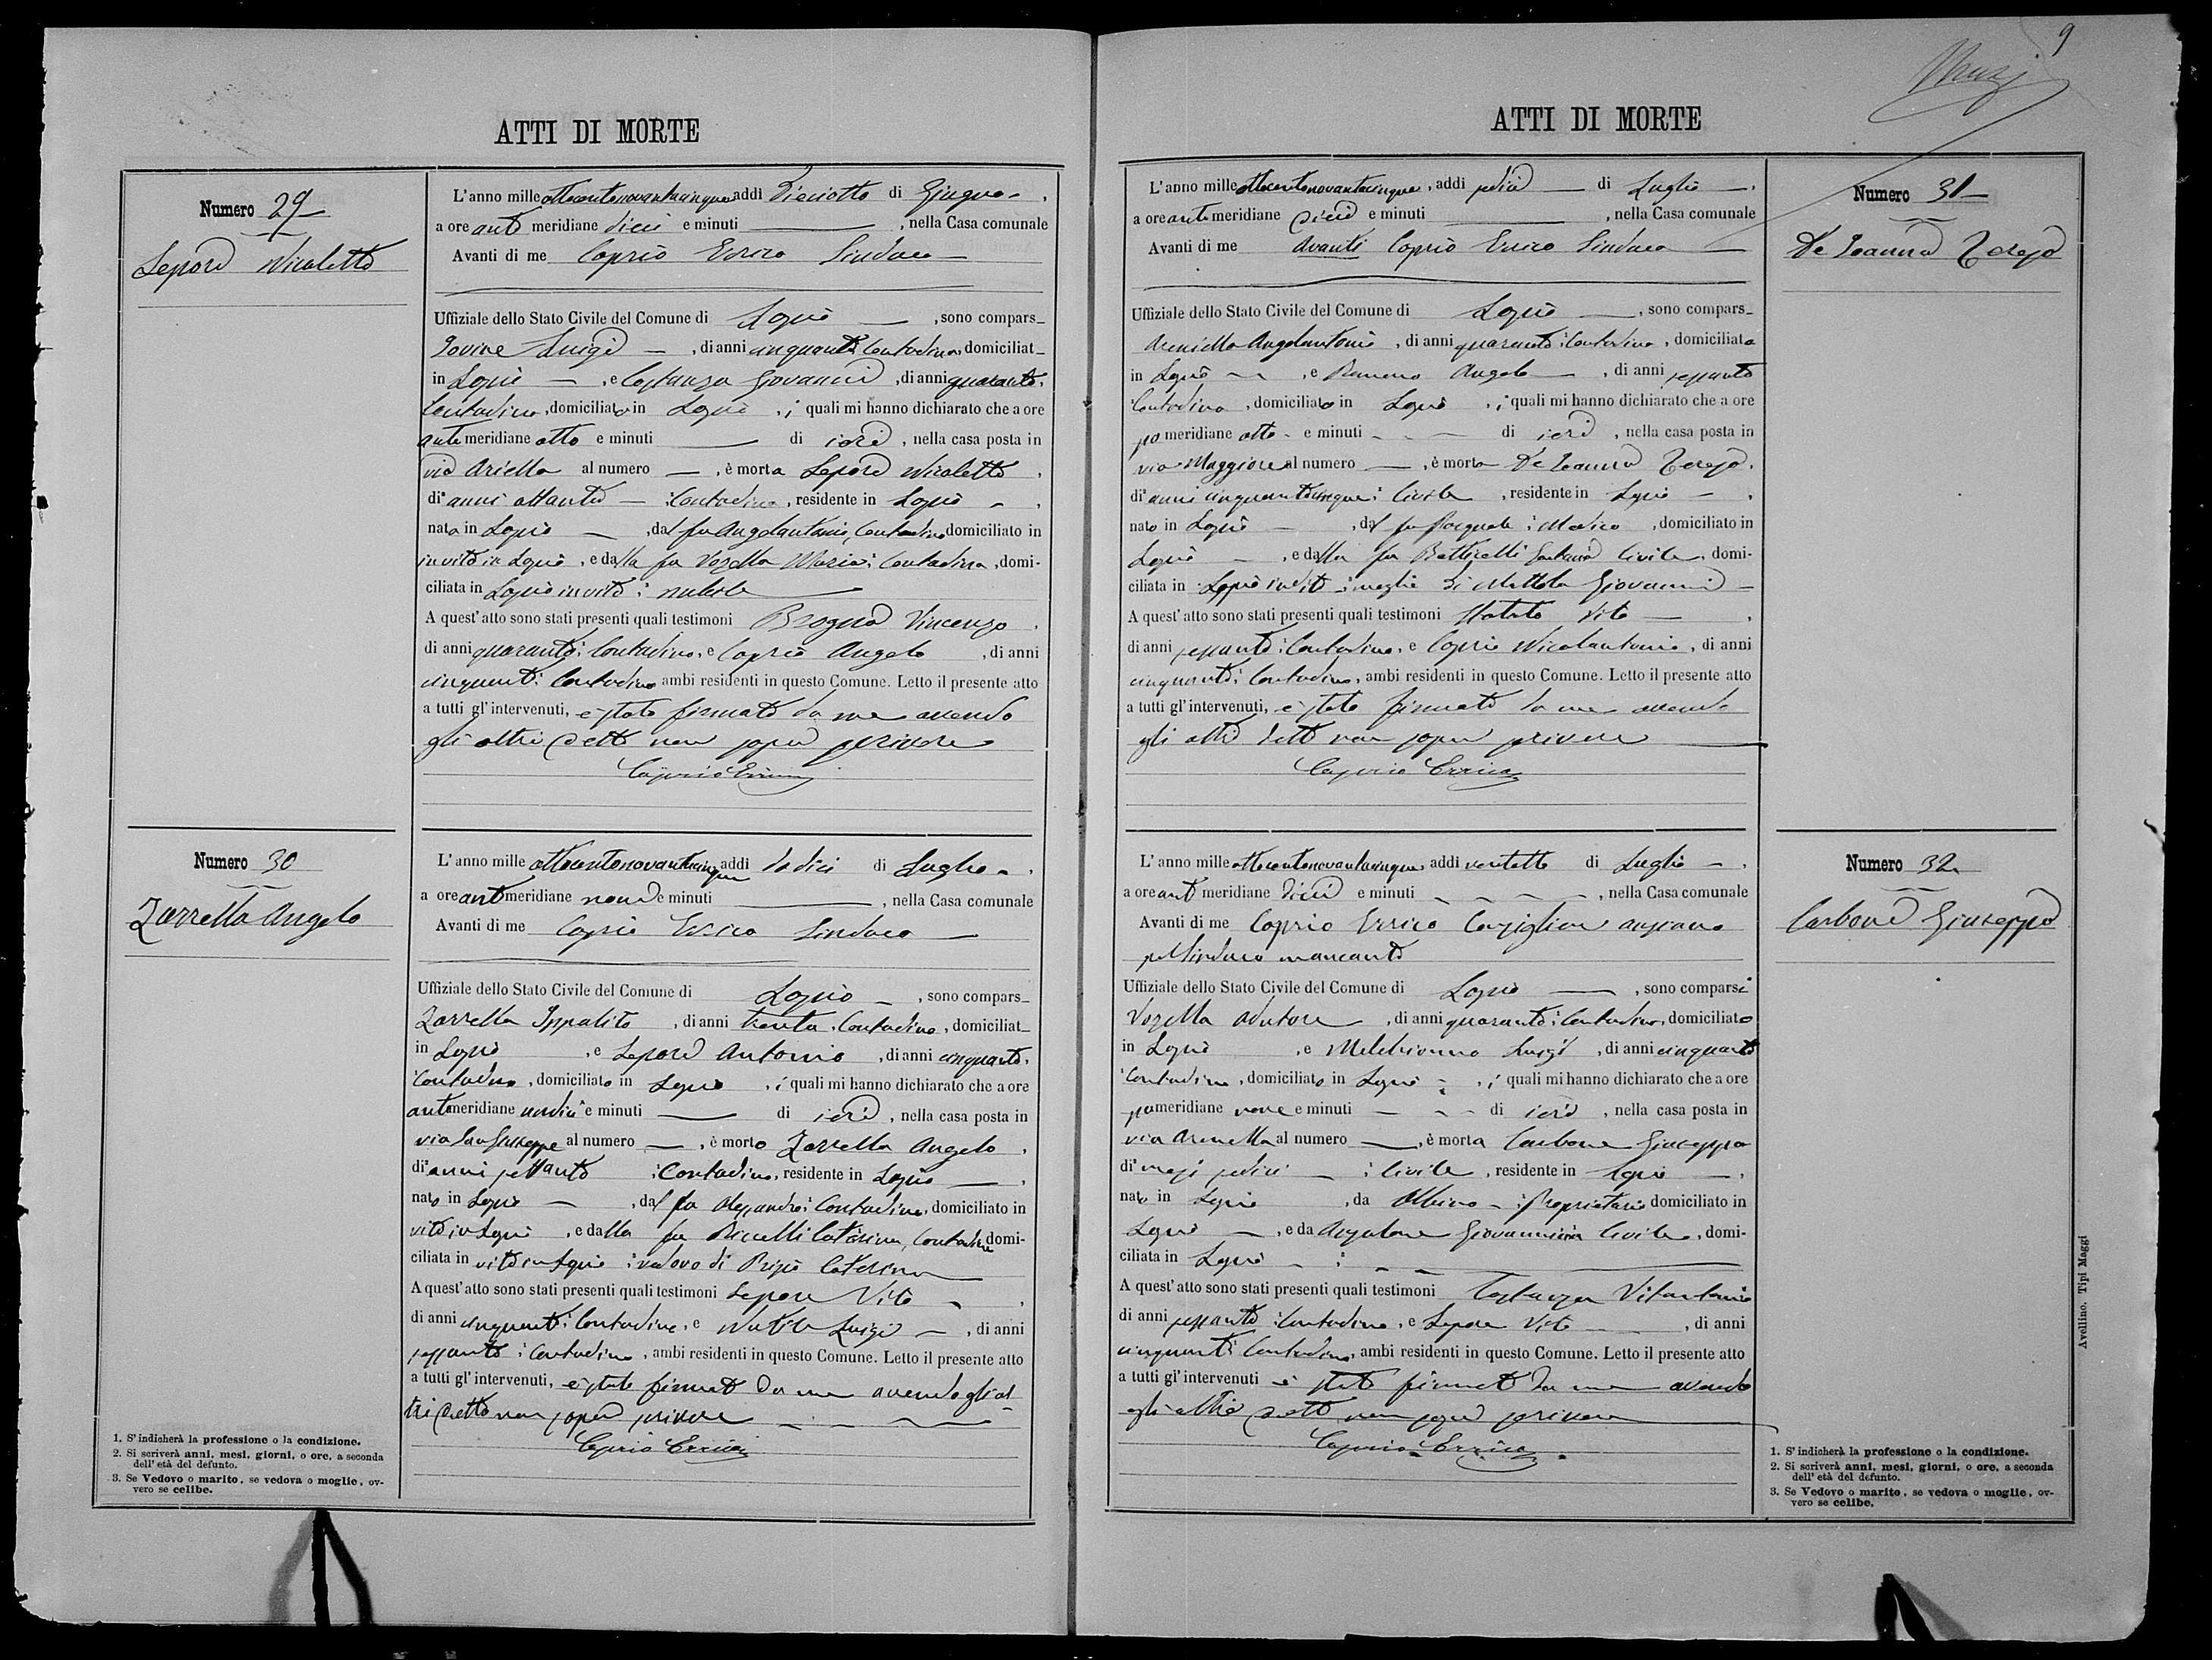 9
ATTI DI MORTE
Numero 29
Lepore Nicoletta
L'anno mille ottocentonovantacinque addì Dieciotto di Giugno
a ore anti meridiane dieci e minuti , nella Casa comunale
Avanti di me Caprio Errico Sindaco
Uffiziale dello Stato Civile del Comune di Lapio , sono compars
Iovine Luigi , di anni cinquanta Contadino domiciliat
in Lapio , e Costanza Giovanni , di anni quaranta,
Contadino, domiciliato in Lapio , i quali mi hanno dichiarato che a ore
anti meridiane otto e minuti di ieri , nella casa posta in
via Ariella al numero , è morta Lepore Nicoletta ,
di anni ottanta Contadina, residente in Lapio ,
nata in Lapio , dal fu Angelantonio, Contadino domiciliato in
in vita in Lapio , e dalla fu Vozella Maria: Contadina , domi-
ciliata in Lapio in vita : nubile
A quest' atto sono stati presenti quali testimoni Brogna Vincenzo ,
di anni quaranta: Contadino, e Caprio Angelo , di anni
cinquanta: Contadino ambi residenti in questo Comune. Letto il presente atto
a tutti gl' intervenuti, è stato firmato da me avendo
gli altri detto non saper scrivere
Caprio Errico
Numero 30
Zarrella Angelo
L' anno mille ottocentonovantacinque addì dodici di Luglio
a ore ant meridiane nove e minuti , nella Casa comunale
Avanti di me Caprio Errico Sindaco
Uffiziale dello Stato Civile del Comune di Lapio , sono compars
Zarrella Ippolito , di anni trenta, Contadino, domiciliat
in Lapio , e Lepore Antonio , di anni cinquanta,
Contadino , domiciliato in Lapio , i quali mi hanno dichiarato che a ore
anti meridiane undici e minuti di ieri , nella casa posta in
via San Giuseppe al numero , è morto Zarrella Angelo ,
di anni settanta : Contadino, residente in Lapio ,
nato in Lapio , dal fu Alessandro: Contadino, domiciliato in
vita in Lapio , e dalla fu Caterina, Contadina domi-
ciliata in vita in Lapio : vedovo di Caterina
A quest' atto sono stati presenti quali testimoni Lepore Vito ,
di anni cinquanta: Contadino, e Luigi , di anni
sessanta : Contadino , ambi residenti in questo Comune. Letto il presente atto
a tutti gl' intervenuti, è stato firmato da me avendo gli al-
tri detto non saper scrivere
Caprio Errico
1. S' indicherà la professione o la condizione.
2. Si scriverà anni, mesi, giorni, o ore, a seconda
dell' età del defunto.
3. Se Vedovo o marito, se vedova o moglie, ov-
vero se celibe.
ATTI DI MORTE
Numero 31
De Ioanna Teresa
L'anno mille ottocentonovantacinque , addì sedici di Luglio ,
a ore anti meridiane dieci e minuti , nella Casa comunale
Avanti di me Avanti Caprio Errico Sindaco
Uffiziale dello Stato Civile del Comune di Lapio , sono compars
Angelantonio , di anni quaranta: Contadino , domiciliato
in Lapio , e Romano Angelo , di anni sessanta
Contadino , domiciliato in Lapio , i quali mi hanno dichiarato che a ore
po meridiane otto e minuti di ieri , nella casa posta in
via Maggiore al numero , è morta De Ioanna Teresa,
di anni cinquantacinque: Civile , residente in Lapio ,
nata in Lapio , dal fu Pasquale : Medico , domiciliato in
Lapio , e dalla fu Civile, domi-
ciliata in Lapio in vita : moglie di Mottola Giovanni
A quest' atto sono stati presenti quali testimoni Vito ,
di anni sessanta: Contadino, e Caprio Nicolantonio , di anni
cinquanta: Contadino, ambi residenti in questo Comune. Letto il presente atto
a tutti gl' intervenuti, è stato firmato da me avendo
gli altri detto non saper scrivere
Caprio Errico
Numero 32
Carbone Giuseppa
L'anno mille ottocentonovantacinque addì ventotto di Luglio ,
a ore ant meridiane dieci e minuti , nella Casa comunale
Avanti di me Caprio Errico Consigliere anziano
pel Sindaco mancante
Uffiziale dello Stato Civile del Comune di Lapio , sono comparsi
Vozella Adutore , di anni quaranta: Contadino, domiciliato
in Lapio , e Melchionno Luigi , di anni cinquanta
Contadino , domiciliato in Lapio , i quali mi hanno dichiarato che a ore
po meridiane nove e minuti di ieri , nella casa posta in
via Arenella al numero , è morta Carbone Giuseppa
di mesi sedici : Civile , residente in Lapio ,
nata in Lapio , da Albino : Proprietario domiciliato in
Lapio , e da Giovannina Civile , domi-
ciliata in Lapio
A quest' atto sono stati presenti quali testimoni Costanza Vitantonio
di anni sessanta : Contadino , e Lepore Vito , di anni
cinquanta: Contadino, ambi residenti in questo Comune. Letto il presente atto
a tutti gl' intervenuti è stato firmato da me avendo
gli altri detto non saper scrivere
Caprio Errico
1. S' indicherà la professione o la condizione.
2. Si scriverà anni, mesi, giorni, o ore, a seconda
dell' età del defunto.
3. Se Vedovo o marito, se vedova o moglie, ov-
vero se celibe.
Avellino. Tipi Maggi